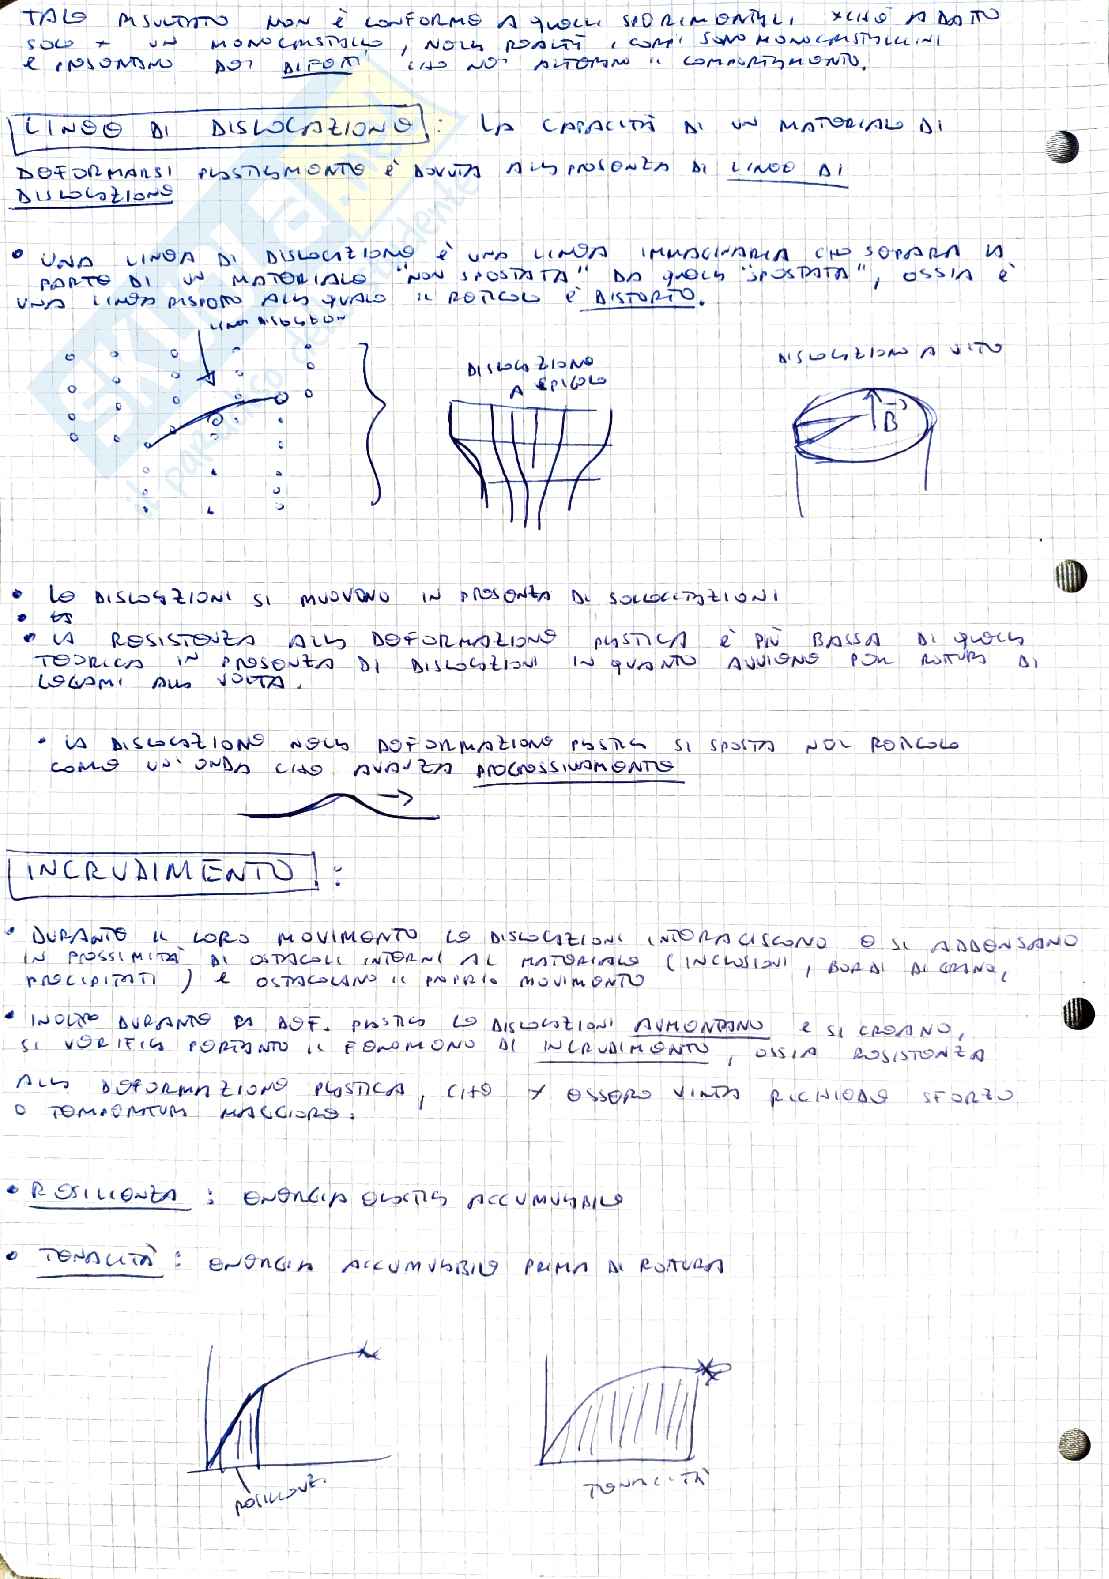 TALE RISULTATO NON È CONFORME A QUELLI SPERIMENTALI XCHÈ ADATTO
SOLO X UN MONOCRISTALLO, NELLA REALTÀ I CORPI SONO MONOCRISTALLINI
E PRESENTANO DEI DIFETTI CHE NE ALTERANO IL COMPORTAMENTO.
LINEE DI DISLOCAZIONE: LA CAPACITÀ DI UN MATERIALE DI
DEFORMARSI PLASTICAMENTE È DOVUTA ALLA PRESENZA DI LINEE DI
DISLOCAZIONE
• UNA LINEA DI DISLOCAZIONE È UNA LINEA IMMAGINARIA CHE SEPARA LA
PARTE DI UN MATERIALE "NON SPOSTATA" DA QUELLA "SPOSTATA", OSSIA È
UNA LINEA RISPETTO ALLA QUALE IL RETICOLO È DISTORTO.
LINEA DISLOCAZION
DISLOCAZIONE
A SPIGOLO
DISLOCAZIONE A VITE
B
• LE DISLOCAZIONI SI MUOVONO IN PRESENZA DI SOLLECITAZIONI
• LA RESISTENZA ALLA DEFORMAZIONE PLASTICA È PIÙ BASSA DI QUELLA
TEORICA IN PRESENZA DI DISLOCAZIONI IN QUANTO AVVIENE PER ROTTURA DI
LEGAMI ALLA VOLTA.
• LA DISLOCAZIONE NELLA DEFORMAZIONE PLASTICA SI SPOSTA NEL RETICOLO
COME UN'ONDA CHE AVANZA PROGRESSIVAMENTE
INCRUDIMENTO:
• DURANTE IL LORO MOVIMENTO LE DISLOCAZIONI INTERAGISCONO E SI ADDENSANO
IN PROSSIMITÀ DI OSTACOLI INTERNI AL MATERIALE (INCLUSIONI, BORDI DI GRANO,
PRECIPITATI) E OSTACOLANO IL PROPRIO MOVIMENTO
• INOLTRE DURANTE LA DEF. PLASTICA LE DISLOCAZIONI AUMENTANO E SI CREANO,
SI VERIFICA PERTANTO IL FENOMENO DI INCRUDIMENTO, OSSIA RESISTENZA
ALLA DEFORMAZIONE PLASTICA, CHE X ESSERE VINTA RICHIEDE SFORZO
O TEMPERATURA MAGGIORE.
• RESILIENZA: ENERGIA ELASTICA ACCUMULABILE
• TENACITÀ: ENERGIA ACCUMULABILE PRIMA DI ROTTURA
RESILIENZ.
TENACITÀ